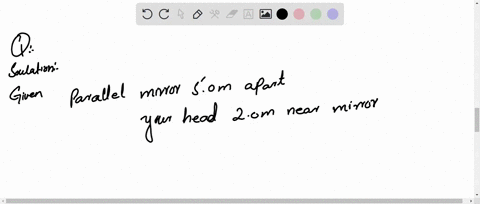 Q:
Soulation:
Given Parallel mirror 5.0m apart
your head 2.0m near mirror